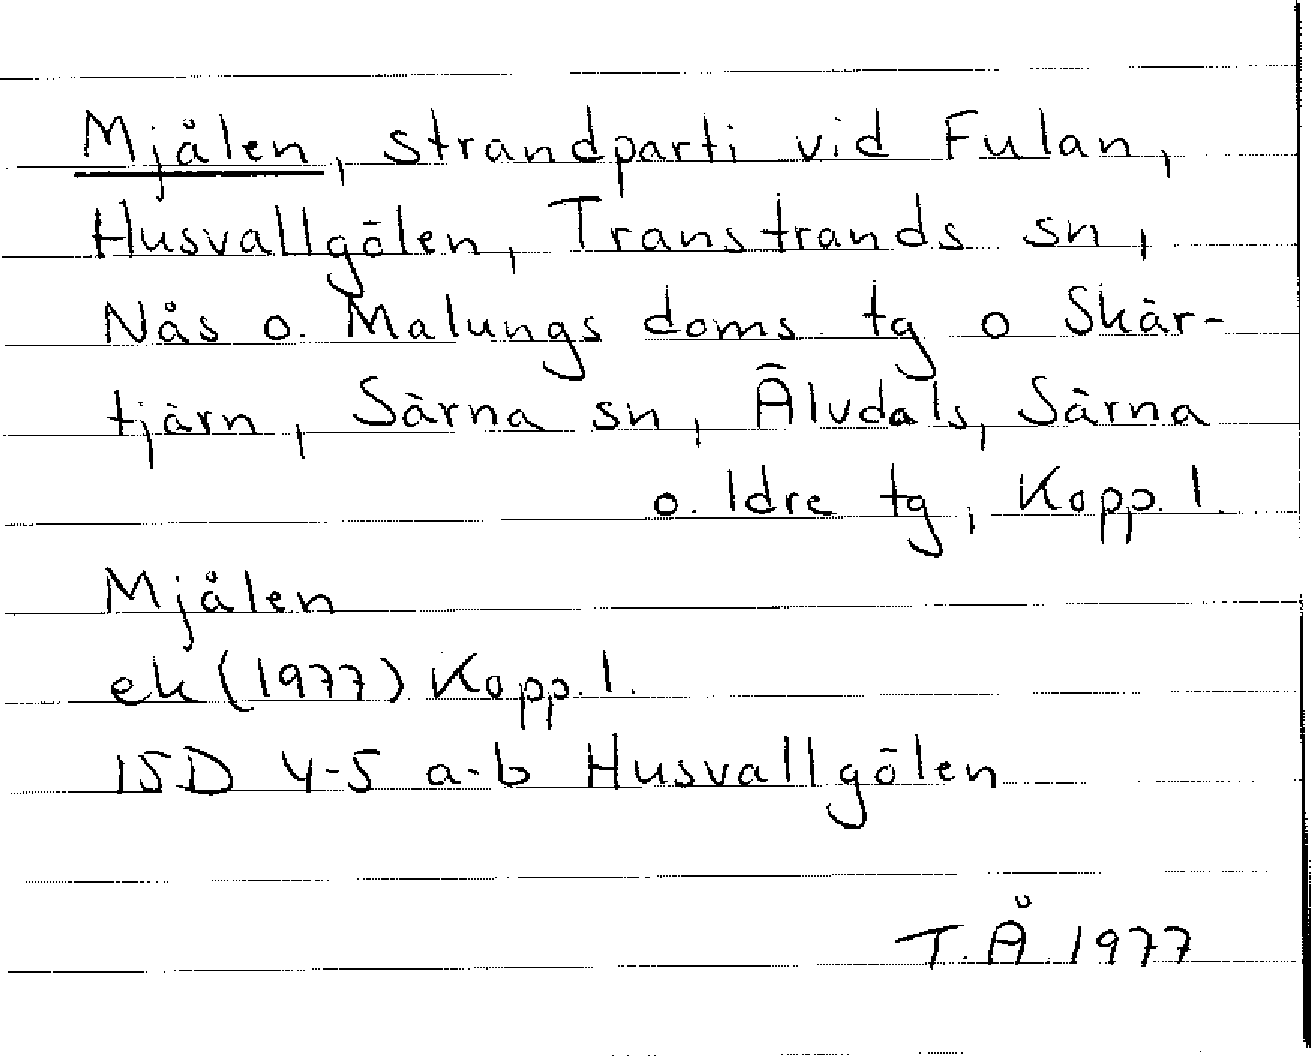 Mjålen, strandparti vid Fulan,
Husvallgölen, Transtrands sn,
Nås o. Malungs doms. tg o Skär-
tjärn, Särna sn, Älvdals, Särna
o. Idre tg, Kopp. l.
Mjålen
ek (1977) Kopp. l.
15D 4-5 a-b Husvallgölen
T.Å 1977